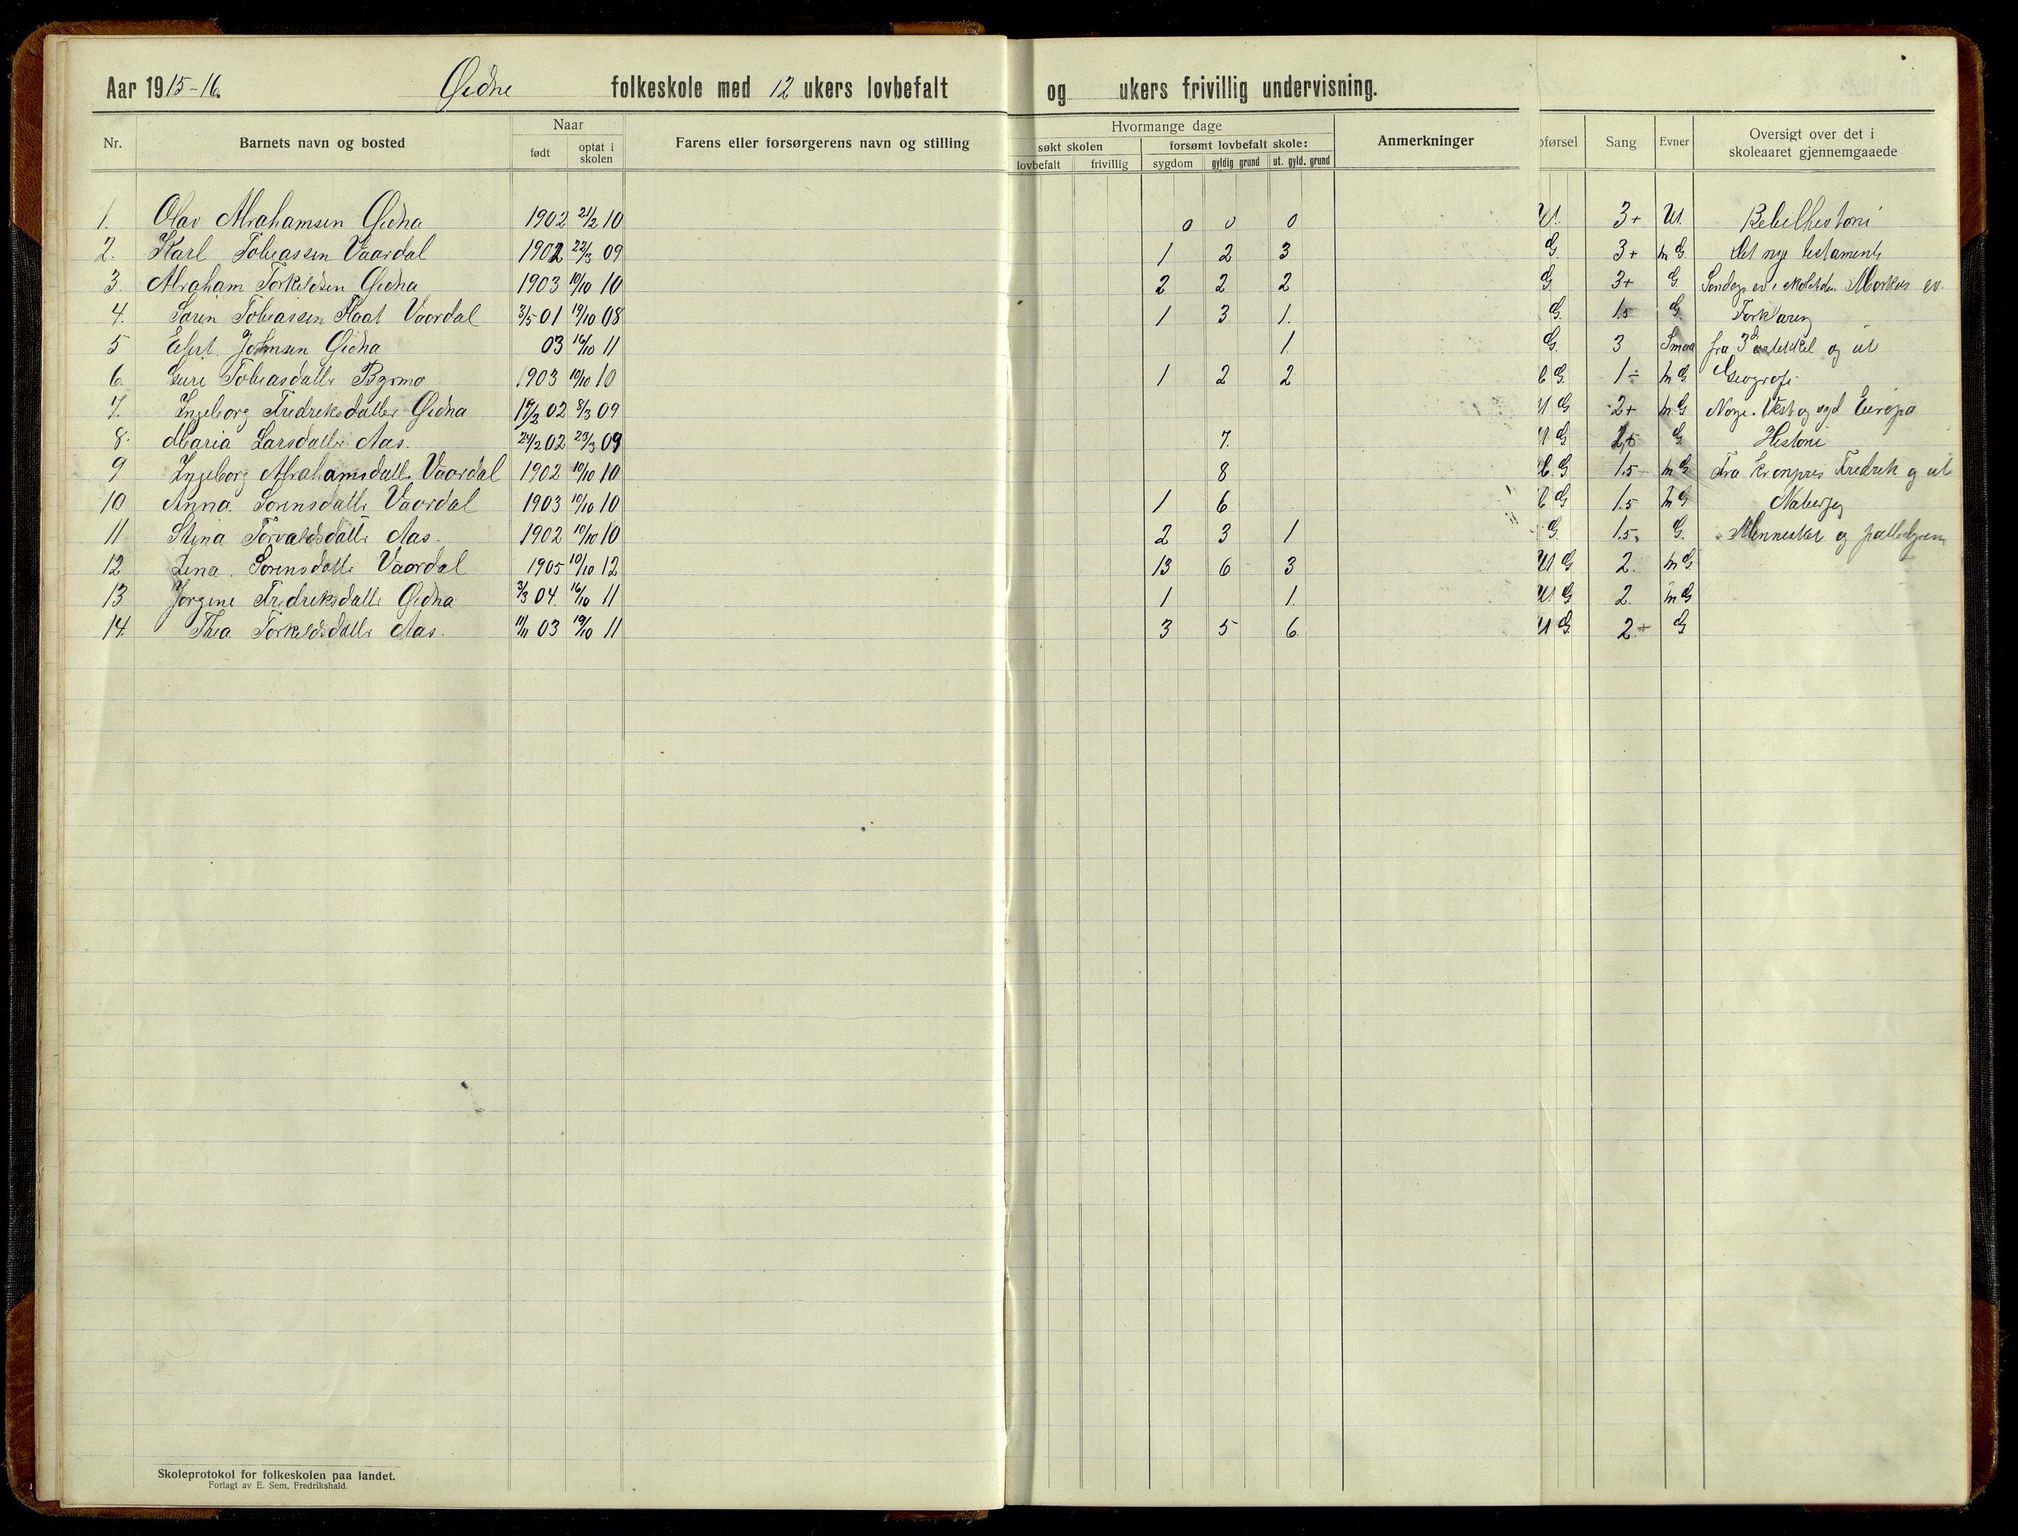 Aar 1915-16. Øidne folkeskole med 12 ukers lovbefalt og ukers frivillig undervisning.
Nr. Barnets navn og bosted Naar født optat i skolen Farens eller forsørgerens navn og stilling Hvormange dage søkt skolen lovbefalt frivillig forsømt lovbefalt skole: sygdom gyldig grund ut. gyld. grund Anmerkninger pførsel Sang Evner Oversigt over det i skoleaaret gjennemgaaede
1. Olav Abrahamsen Øidna 1902 21/2 10 0 0 0 U. 3+ U. Bebelhestori
2. Karl Tobiassen Vaardal 1902 22/3 09 1 2 3 G. 3+ mG. Det nye testamente
3 Abraham Torkeldsen Øidna 1903 10/10 10 2 2 2 G. 3+ G. Markus ev
4. Sørin Tobiassen Vaardal 3/5 01 19/10 08 1 3 1. G. 1.5 G. Forklaring
5 Johnsen Øidna 03 16/10 11 1. G. 3 Smaa fra 3d artikkel og ut
6. Guri Tobiasdatter Byrmo 1903 10/10 10 1 2 2 G. 1÷ mG. Geografi
7. Ingeborg Fredriksdatter Øidna 17/2 02 8/3 09 U G 2+ mG. Norge. Vest og syd Europa
8. Maria Larsdatter Aas. 24/2 02 23/3 09 7. U G. G Histori
9 Ingeborg Abrahamsdatter Vaardal 1902 10/10 10 8 G. 1.5 mG Fra Kronpris Fredrik og ut
10 Anna Sørensdatter Vaardal 1903 10/10 10 1 6 G 1.5 mG
11 Stina Torvaldsdatter Aas. 1902 10/10 10 2 3 1 G. 1.5. G. Mennesket og
12 Lina Sørensdatter Vaardal 1905 10/10 12 13 6 3 U G 2. mG.
13 Jørgine Fredriksdatter Øidna 3/3 04. 16/10 11 1 1. U G 2. mG
14. Thea Torkeldsdatter Aas. 11/11 03 19/10 11 3 5 6. U G. 2.+ G
Skoleprotokol for folkeskolen paa landet.
Forlagt av E. Sem, Fredrikshald.